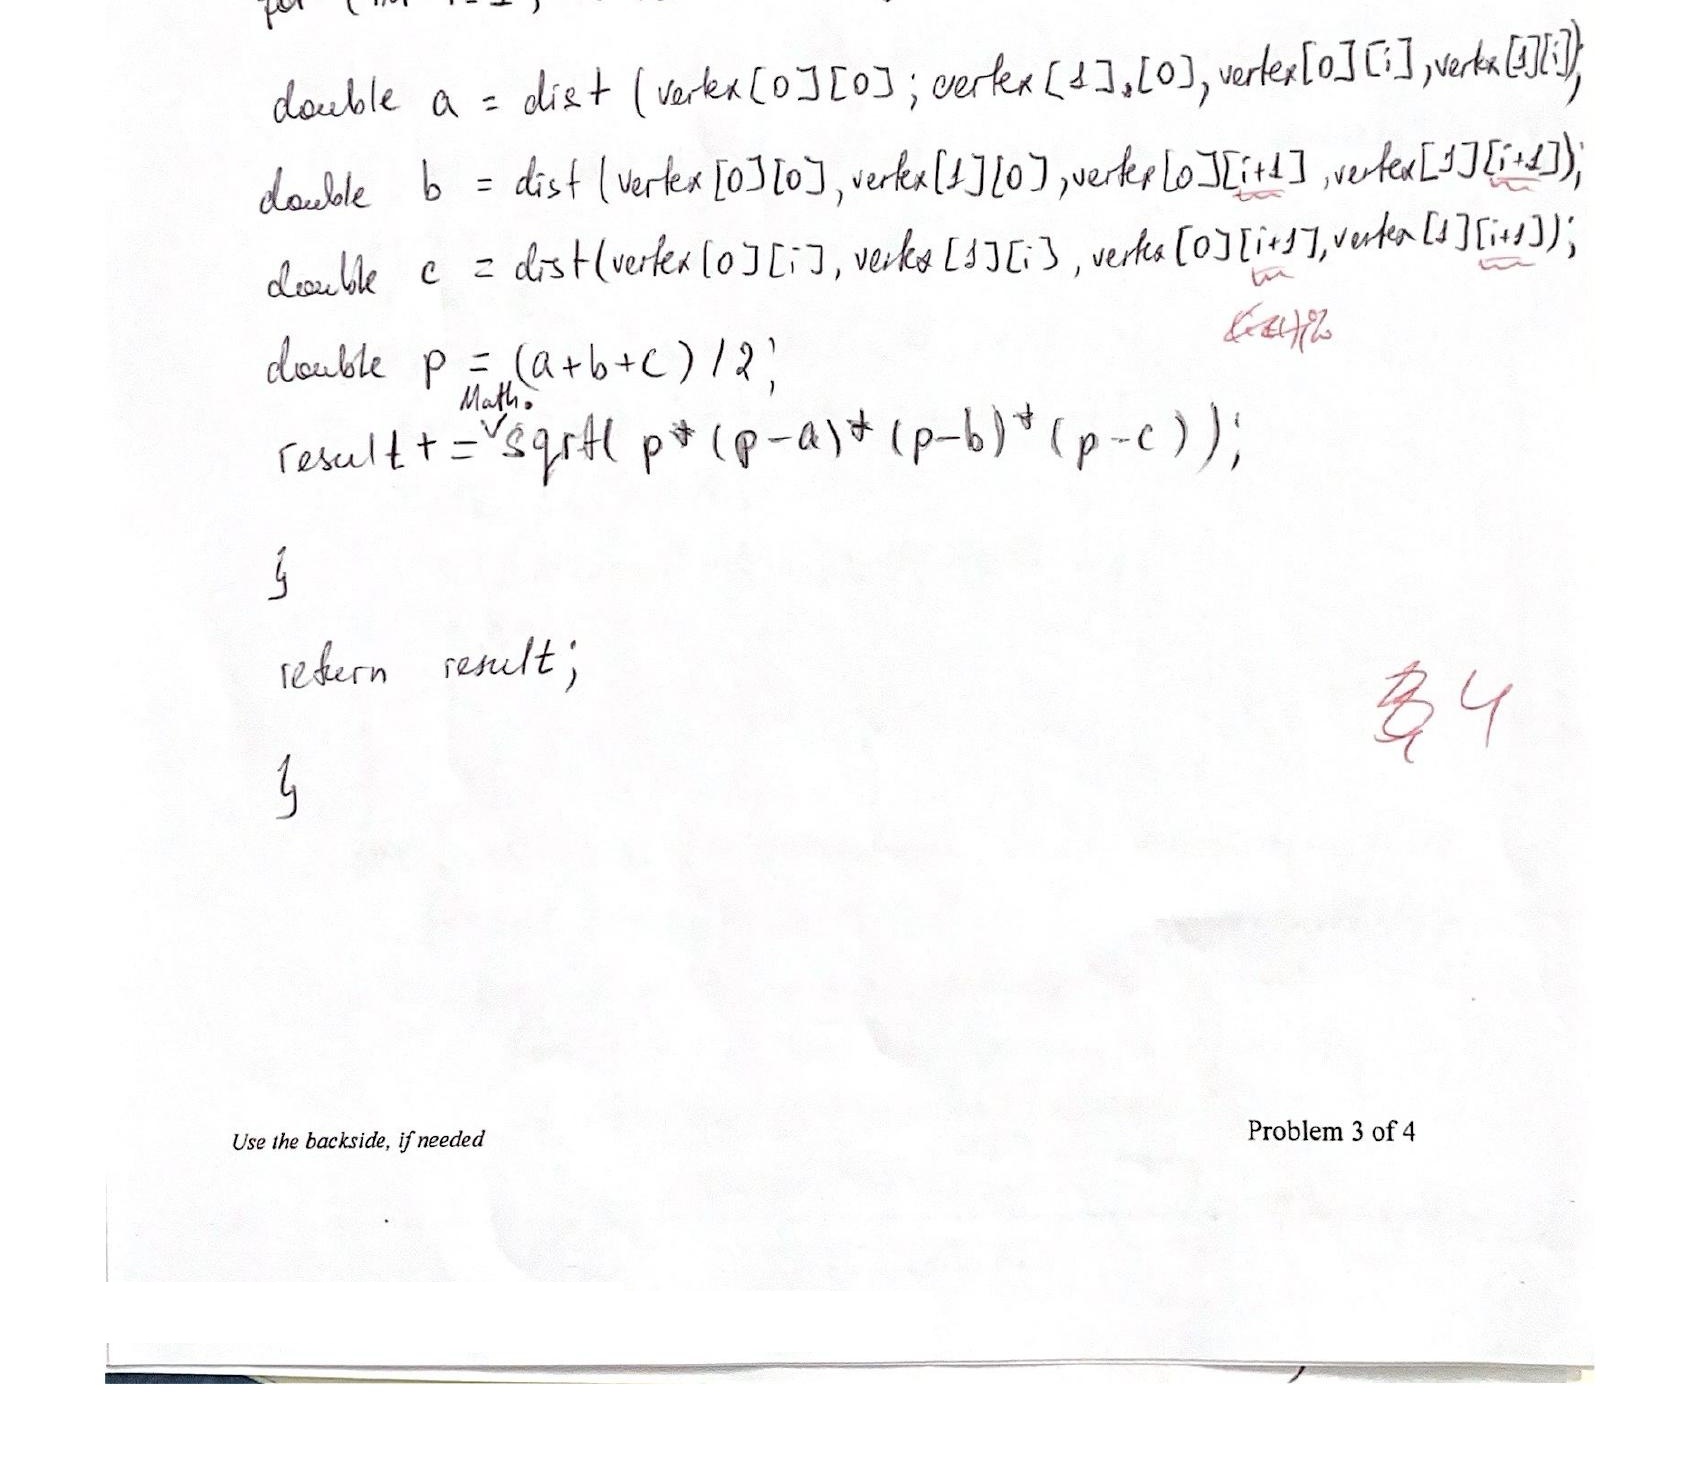 double a = dist (vertex[0][0]; vertex[1],[0], vertex[0][i], vertex[1][i]);
double b = dist (vertex[0][0], vertex[1][0], vertex[0][i+1], vertex[1][i+1]);
double c = dist(vertex[0][i], vertex[1][i], vertex[0][i+1], vertex[1][i+1]);
double p = (a+b+c)/2;
Math.
result += sqrt( p*(p-a)*(p-b)*(p-c));
}
return result;
4
}
Use the backside, if needed
Problem 3 of 4